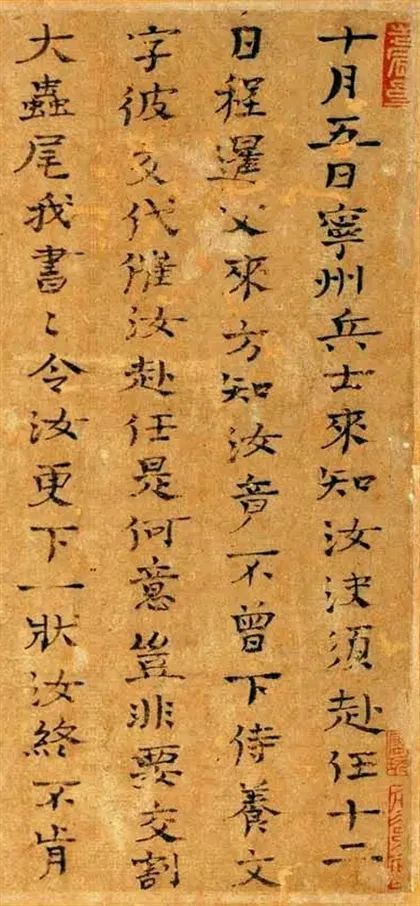 十月五日寧州兵士來知汝決須赴任十二
日程暹父來方知汝音不曾下侍養文
字彼交代催汝赴任是何意豈非要交割
大蟲尾我書〻令汝更下一狀汝終不肯